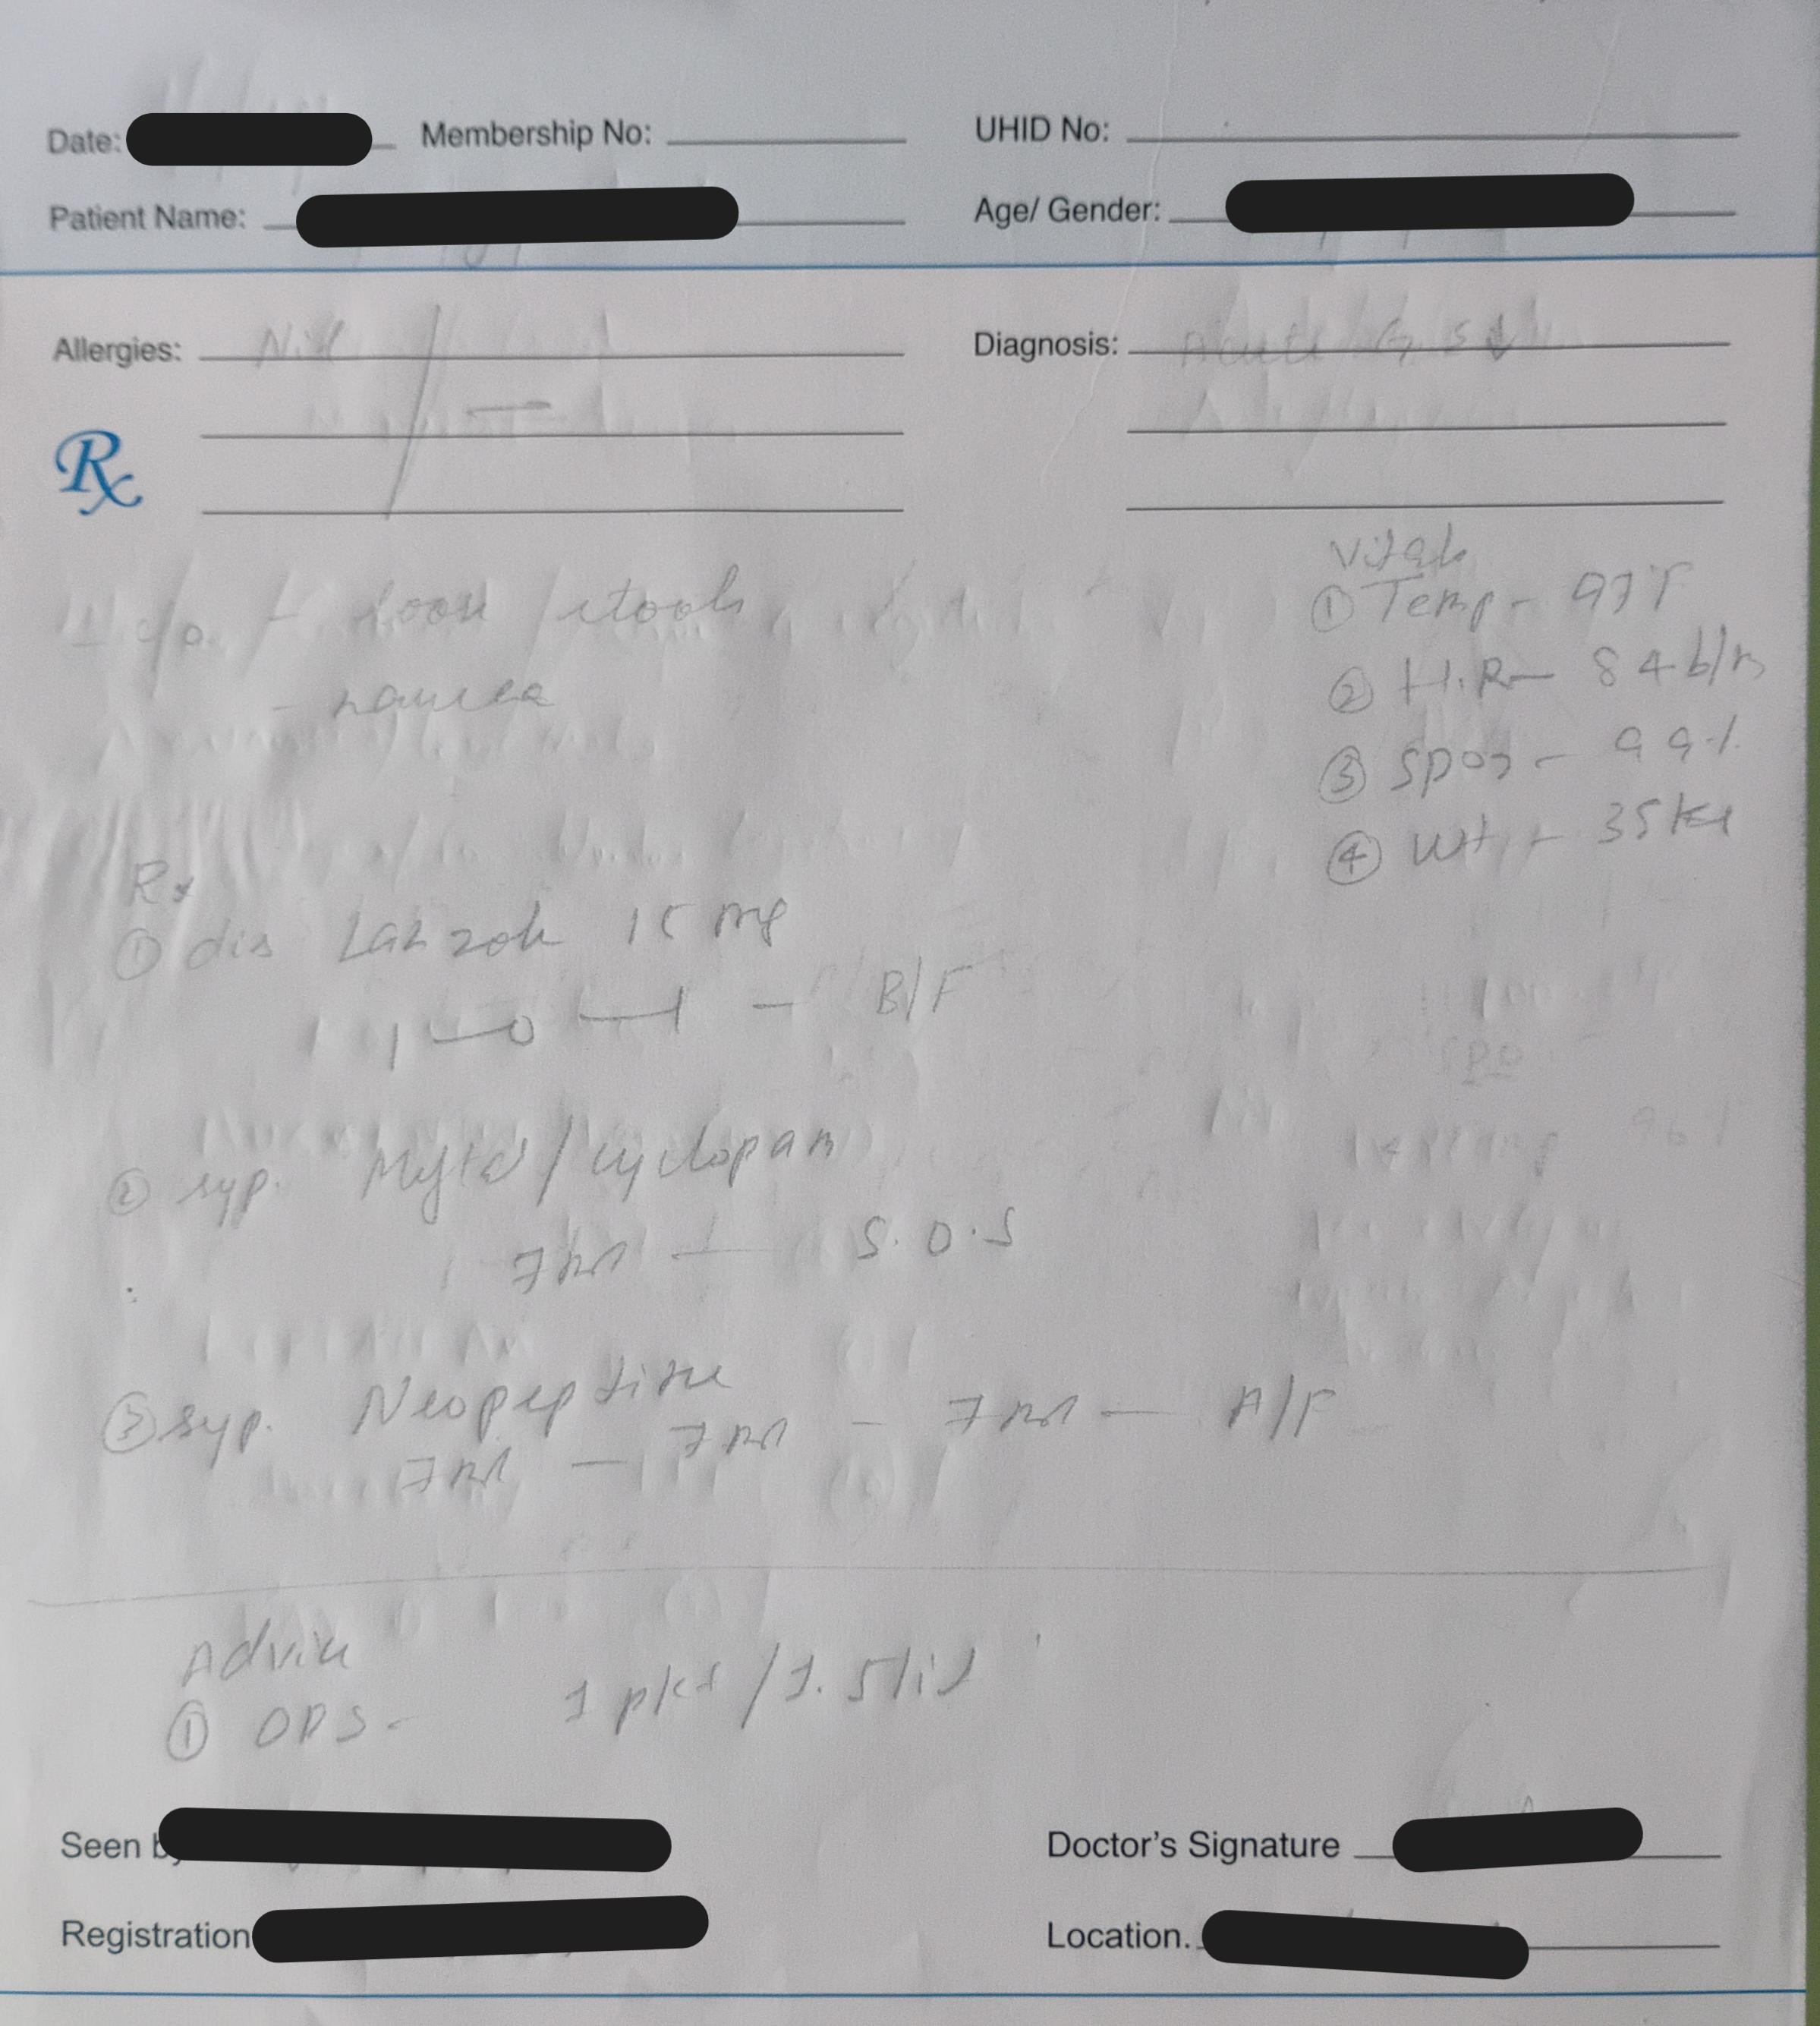 Date: Membership No: UHID No:
Patient Name: Age/ Gender:
Allergies: Nil Diagnosis: Acute
Rx
Vitals
c/o - loose stools
① Temp - 97°F
- nausea
② H.R - 84 b/m
③ SpO2 - 99%
④ Wt - 35 Kg
Rx
① dis Lanzol 15 mg
1 - 0 - 1 - B/F
② syp. / Cyclopam
7ml - S.O.S
③ syp. Neopeptine
7ml - 7ml - 7ml - A/F
Advice
① ORS - 1 pkt / 1.5 lit
Seen Doctor's Signature
Registration Location.